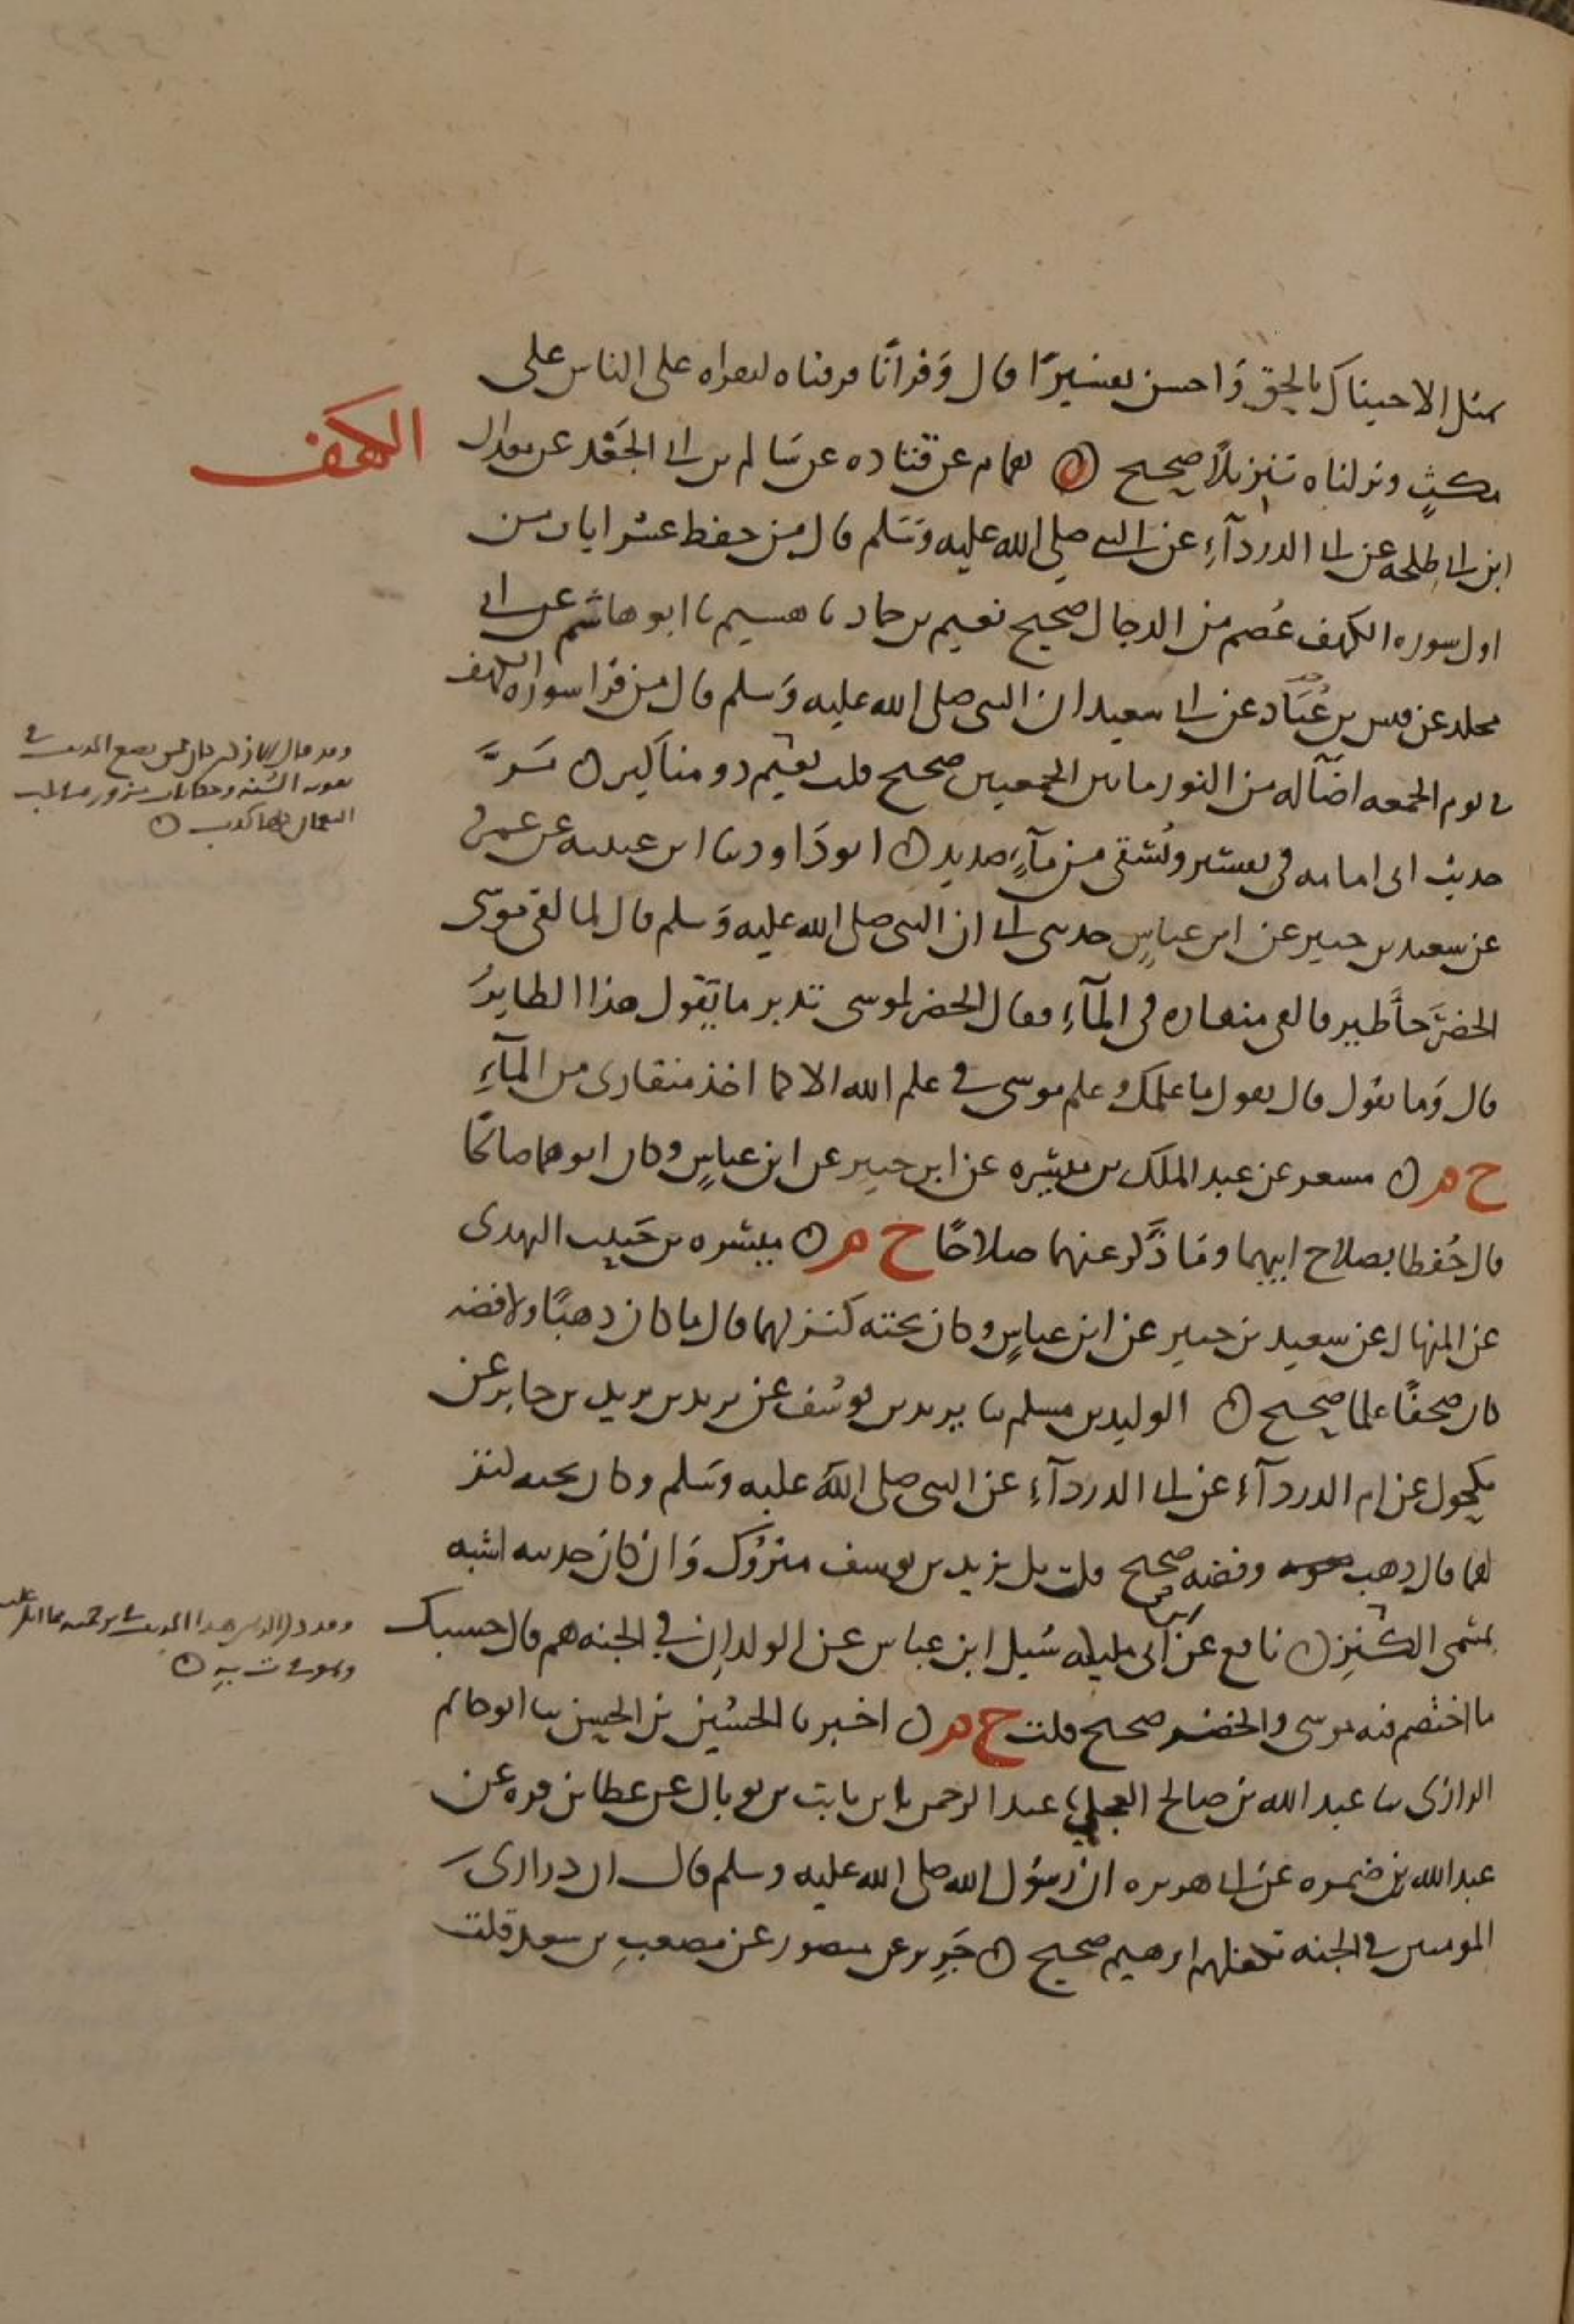 بمثل الا جيناك بالحق وَاحسن تفسيرًا قال وَقرانًا فرقناه لتقراه على الناس على
مكثٍ ونزلناه تنزيلاً صحيح ۞ همام عن قتاده عن سَالم بن ابي الجَعْد عن معدان
الكهف
ابن ابي طلحه عن ابي الدردآءِ عن النبي صلى الله عليه وَسَلم قال من حفظ عشر ايات من
اول سوره الكهف عُصم من الدجال صحيح نعيم بن حماد نا هشيم نا ابو هاشم عن ابي
مجلد عن قيس بن عُبَاد عن ابي سعيد ان النبي صلى الله عليه وَسلم قال من قرا سوره الكهف
في يوم الجمعه اضآ له من النور ما بين الجمعتين صحيح قلت نعيم ذو مناكير ن مَرَّ
حديث ابي امامه في يعسر ويُسْقى من مآءٍ صديد ن ابو دَاود نا ابن عيينه عن عمرو
عن سعيد بن جبير عن ابن عباسٍ حدثني ابي ان النبي صلى الله عليه وَسلم قال لما لقي موسَى
الخضَر جآ طير فالقى منقاره في المآءِ فقال الخضر لموسى تدبر ما يقول هذا الطايرُ
قال وَما يقول قال يقول ما علمك وعلم موسى في علم الله الا كما اخذ منقاري من المآءِ
خ م ن مسعر عن عبد الملك بن ميسره عن ابن جبير عن ابن عباسٍ وكان ابوهما صالحًا
قال حُفظا بصلاح ابيهما وما ذَكر عنهما صلاحًا خ م ن ميسره بن حَبيب النهدي
عن المنهال عن سعيد بن جبير عن ابن عباسٍ وكان تحته كنز لهما قال ما كان ذهبًا ولا فضه
كان صحفًا علما صحيح ن الوليد بن مسلم نا يزيد بن يوسُف عن يزيد بن يزيد بن جابر عن
مكحول عن ام الدردآءِ عن ابي الدردآءِ عن النبي صلى الله عليه وسَلم وكان تحته كنز
لهما قال ذهب وفضه صحيح قلت بل يزيد بن يوسف متروك وَان كان حديثه اشبه
بمسمى الكنزِ ن نافع عن ابن عمر ابن ابي مليكه سُيل ابن عباس عن الولدان في الجنه هم قال حسبك
ما اختصم فيه موسى والخضر صحيح قلت خ م ن اخبرنا الحسَين بن الحسن نا ابو حاتم
الرازي نا عبد الله بن صالح العجلي نا عبد الرحمن بن ثابت بن ثوبان عن عطا بن قره عن
عبد الله بن ضمره عن ابي هريره ان رسُول الله صلى الله عليه وسلم قال ان ذراري
المومنين في الجنه يكفلهم ابرهيم صحيح ن جَرِير عن منصور عن مصعبِ بن سعد قلت